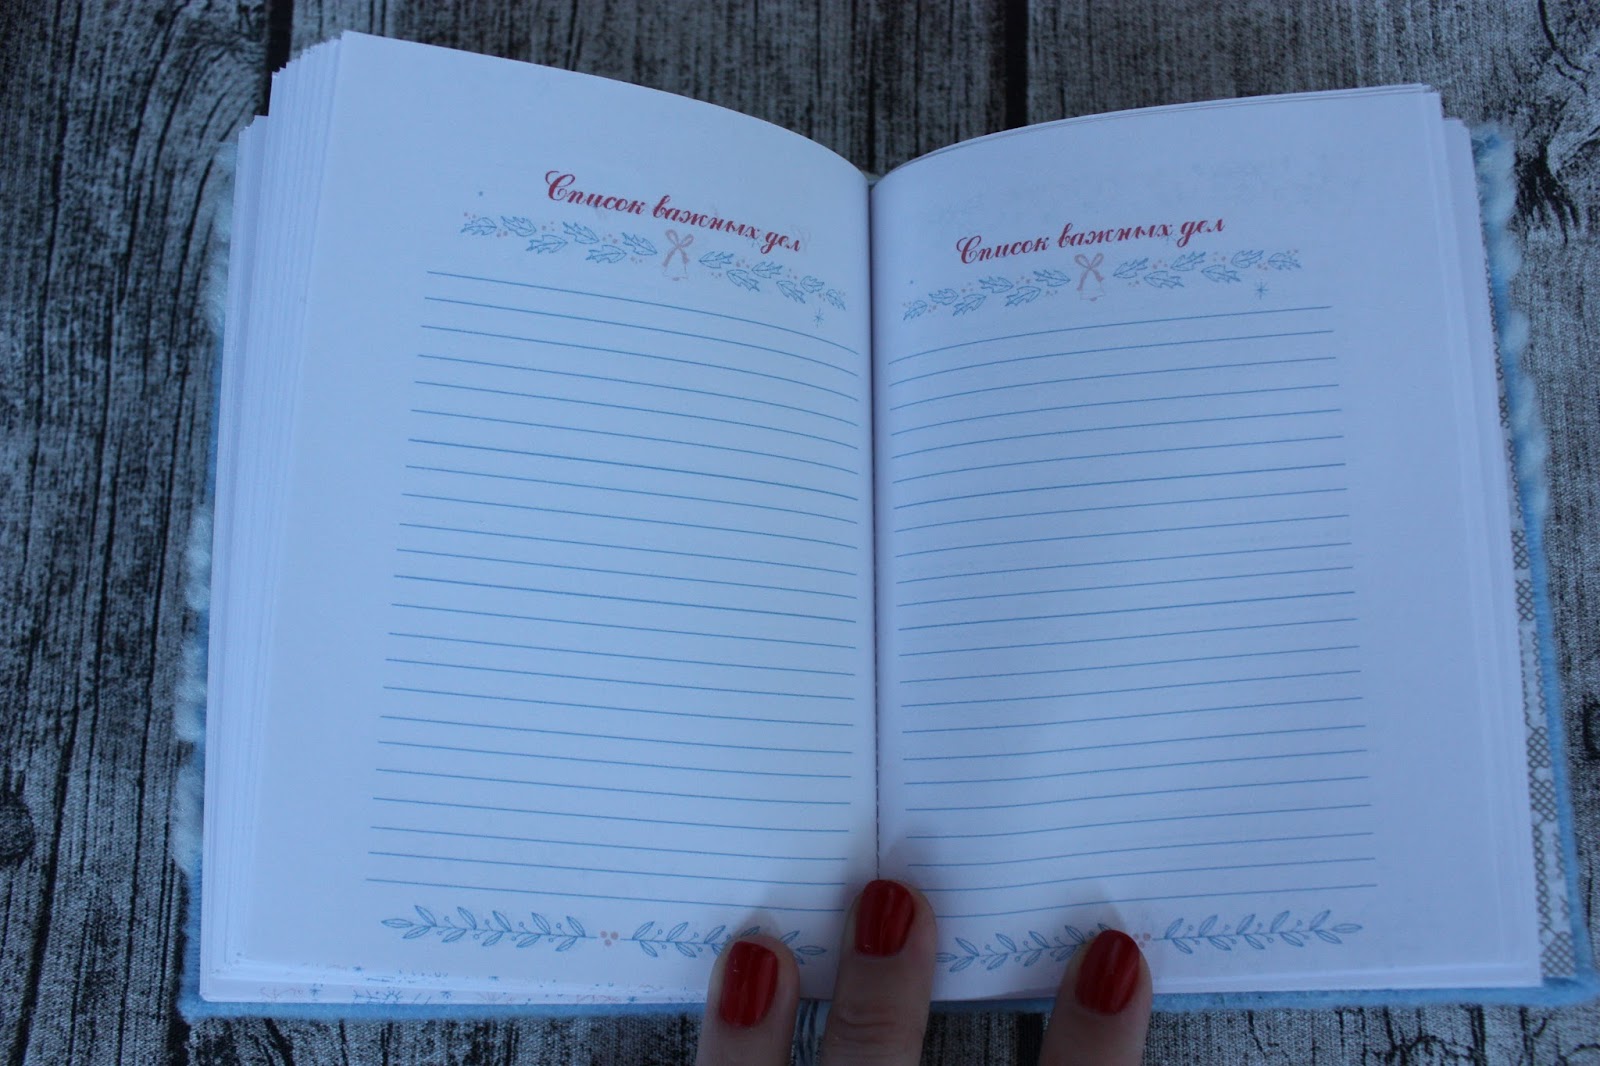 Список важных дел
Список важных дел